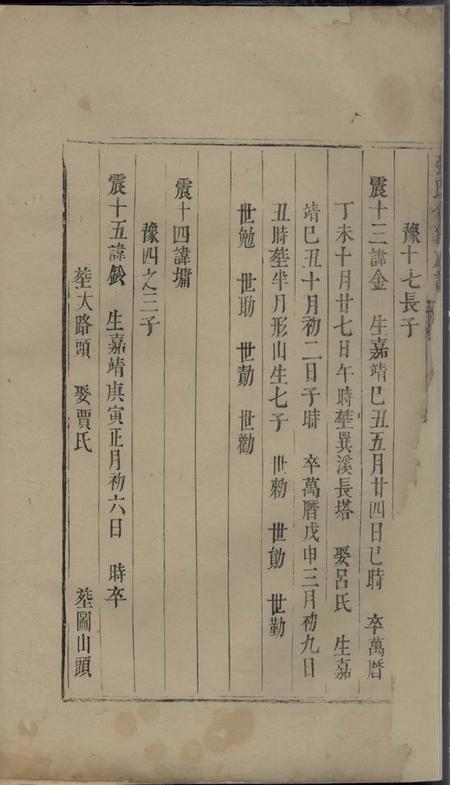 豫十七長子
震十三諱金 生嘉靖己丑五月廿四日巳時 卒萬曆
丁未十月廿七日午時塟巽溪長塔 娶呂氏 生嘉
靖己丑十月初二日子時 卒萬曆戊申三月初九日
丑時塟半月形山生七子 世勑 世勛 世勤
世勉 世助 世勣 世勸
震十四諱墉
豫四之三子
震十五諱鈙 生嘉靖庚寅正月初六日 時卒
塟大路頭 娶賈氏 塟圖山頭